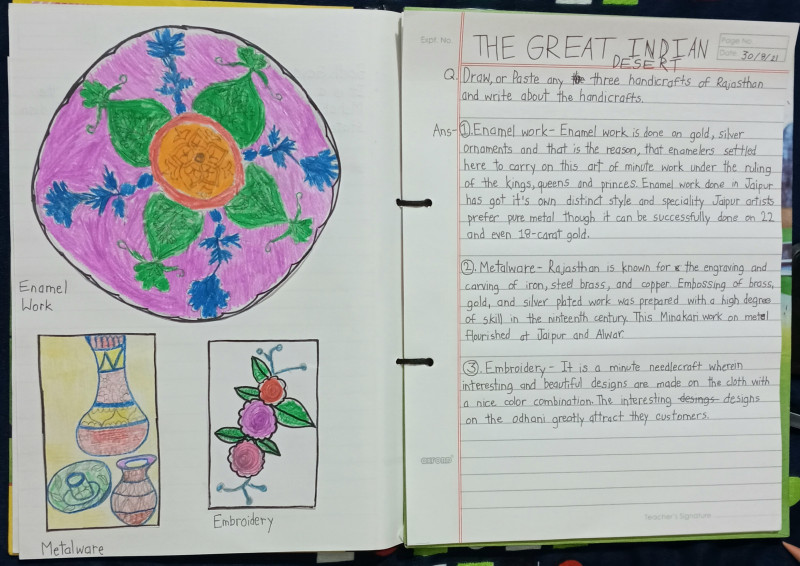 Enamel
Work
Metalware
Embroidery
Expt. No.
Page No.
Date 30/9/21
THE GREAT INDIAN
DESERT
Q. Draw, or Paste any three handicrafts of Rajasthan
and write about the handicrafts.
Ans- ①. Enamel work- Enamel work is done on gold, silver
ornaments and that is the reason, that enamelers settled
here to carry on this art of minute work under the ruling
of the kings, queens and princes. Enamel work done in Jaipur
has got it's own distinct style and speciality Jaipur artists
prefer pure metal though it can be successfully done on 22
and even 18-carat gold.
②. Metalware- Rajasthan is known for the engraving and
carving of iron, steel brass, and copper. Embossing of brass,
gold, and silver plated work was prepared with a high degree
of skill in the ninteenth century. This Minakari work on metal
flourished at Jaipur and Alwar.
③. Embroidery- It is a minute needlecraft wherein
interesting and beautiful designs are made on the cloth with
a nice color combination. The interesting desings designs
on the odhani greatly attract they customers.
OXFORD
Teacher's Signature